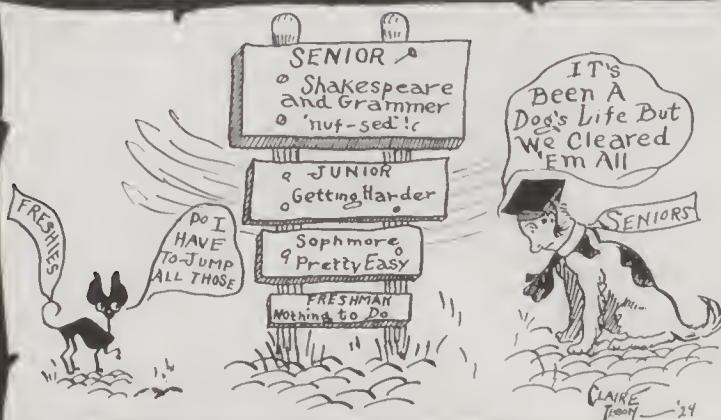 FRESHIES
DO I
HAVE
TO-JUMP
ALL THOSE
SENIOR
Shakespeare
and Grammer
'nuf-sed'!
JUNIOR
Getting Harder
Sophmore
Pretty Easy
FRESHMAN
Nothing to Do
IT'S
Been A
Dog's Life But
We Cleared
'Em All
SENIORS
CLAIRE
'24